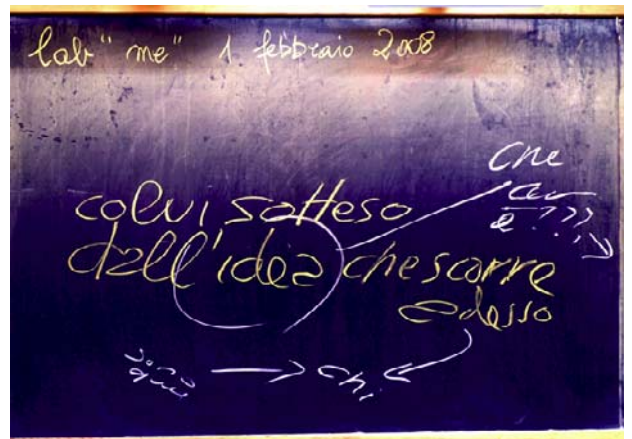 lab "me" 1 febbraio 2008
che
è ???
colui sotteso
dall'idea che scorre
adesso
chi